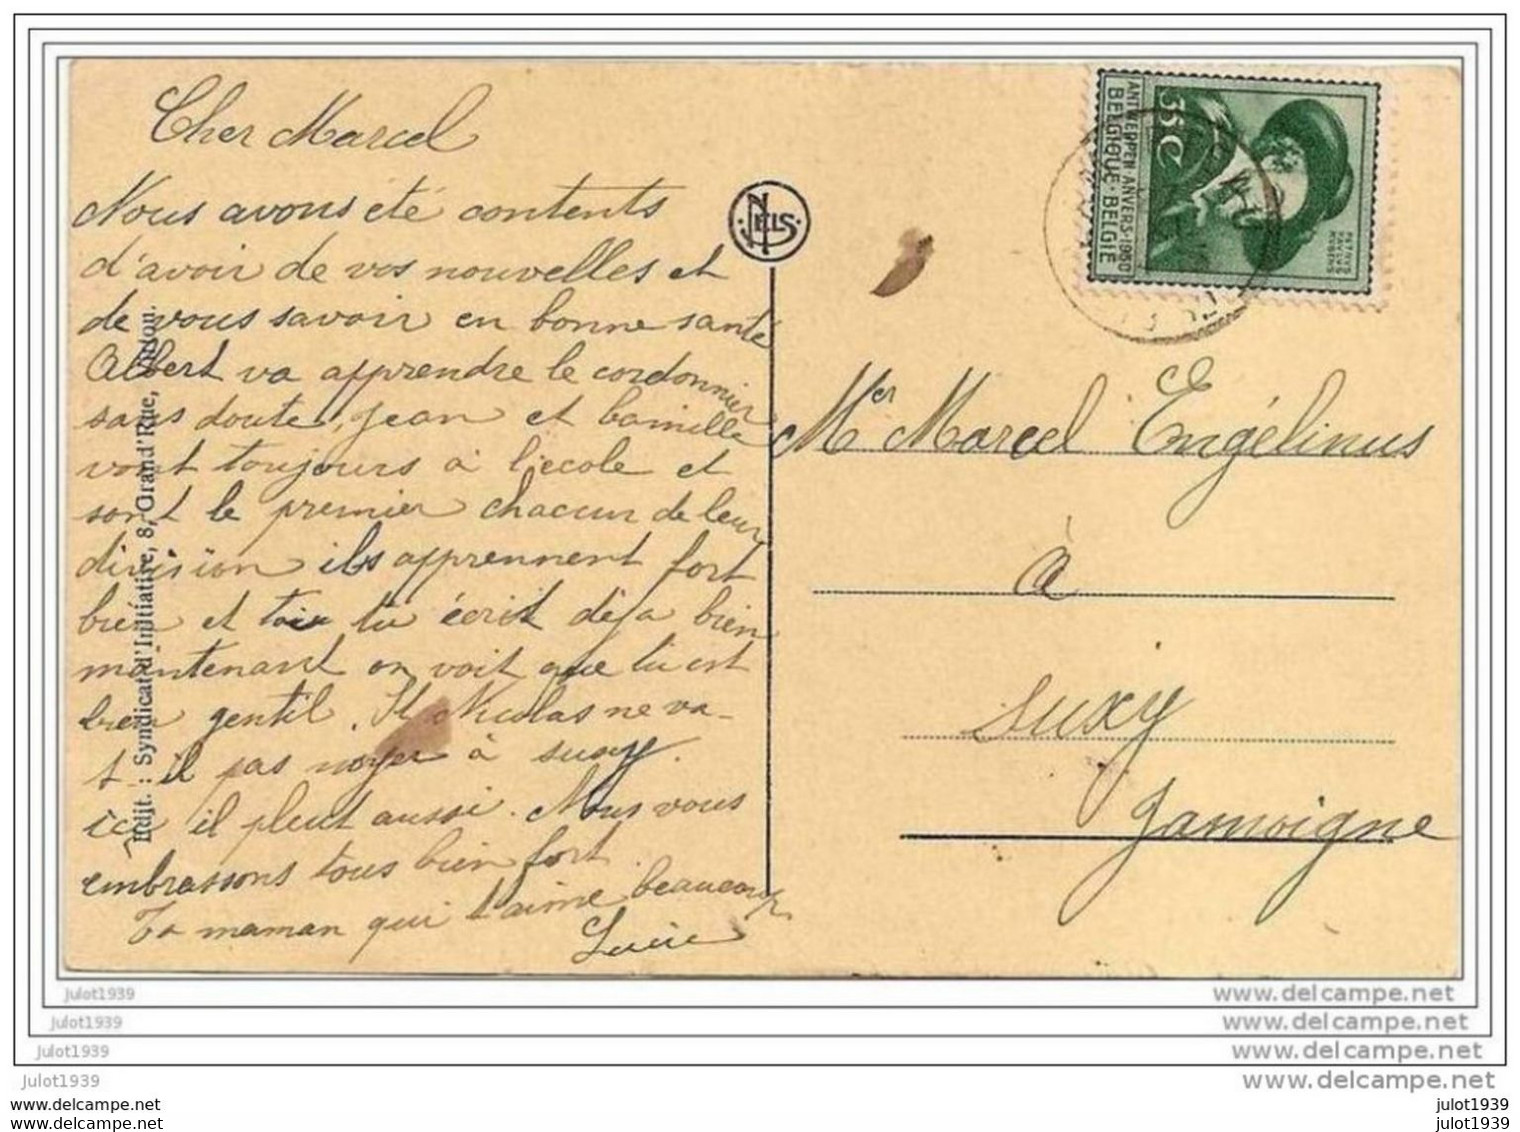 Cher Marcel
Nous avons été contents
d'avoir de vos nouvelles et
de vous savoir en bonne santé
Albert va apprendre le cordonnier
sans doute, Jean et Camille
vont toujours à l'école et
sont le premier chacun de leur
division ils apprennent fort
bien et toi tu écrit déja bien
maintenant on voit que tu est
bien gentil. St Nicolas ne va-
t il pas noyer à suxy.
ici il pleut aussi. Nous vous
embrassons tous bien fort.
Ta maman qui t'aime beaucoup
Lucie
Edit. : Syndicat d'Initiative, 8, Grand'Rue,
NELS
35C
ANTWERPEN·ANVERS·1930
BELGIQUE·BELGIË
PETRUS
PAULUS
RUBENS
Mer Marcel Engélinus
à
suxy
Jamoigne
julot1939
julot1939
julot1939
julot1939
julot1939
julot1939
www.delcampe.net
www.delcampe.net
www.delcampe.net
www.delcampe.net
julot1939
julot1939